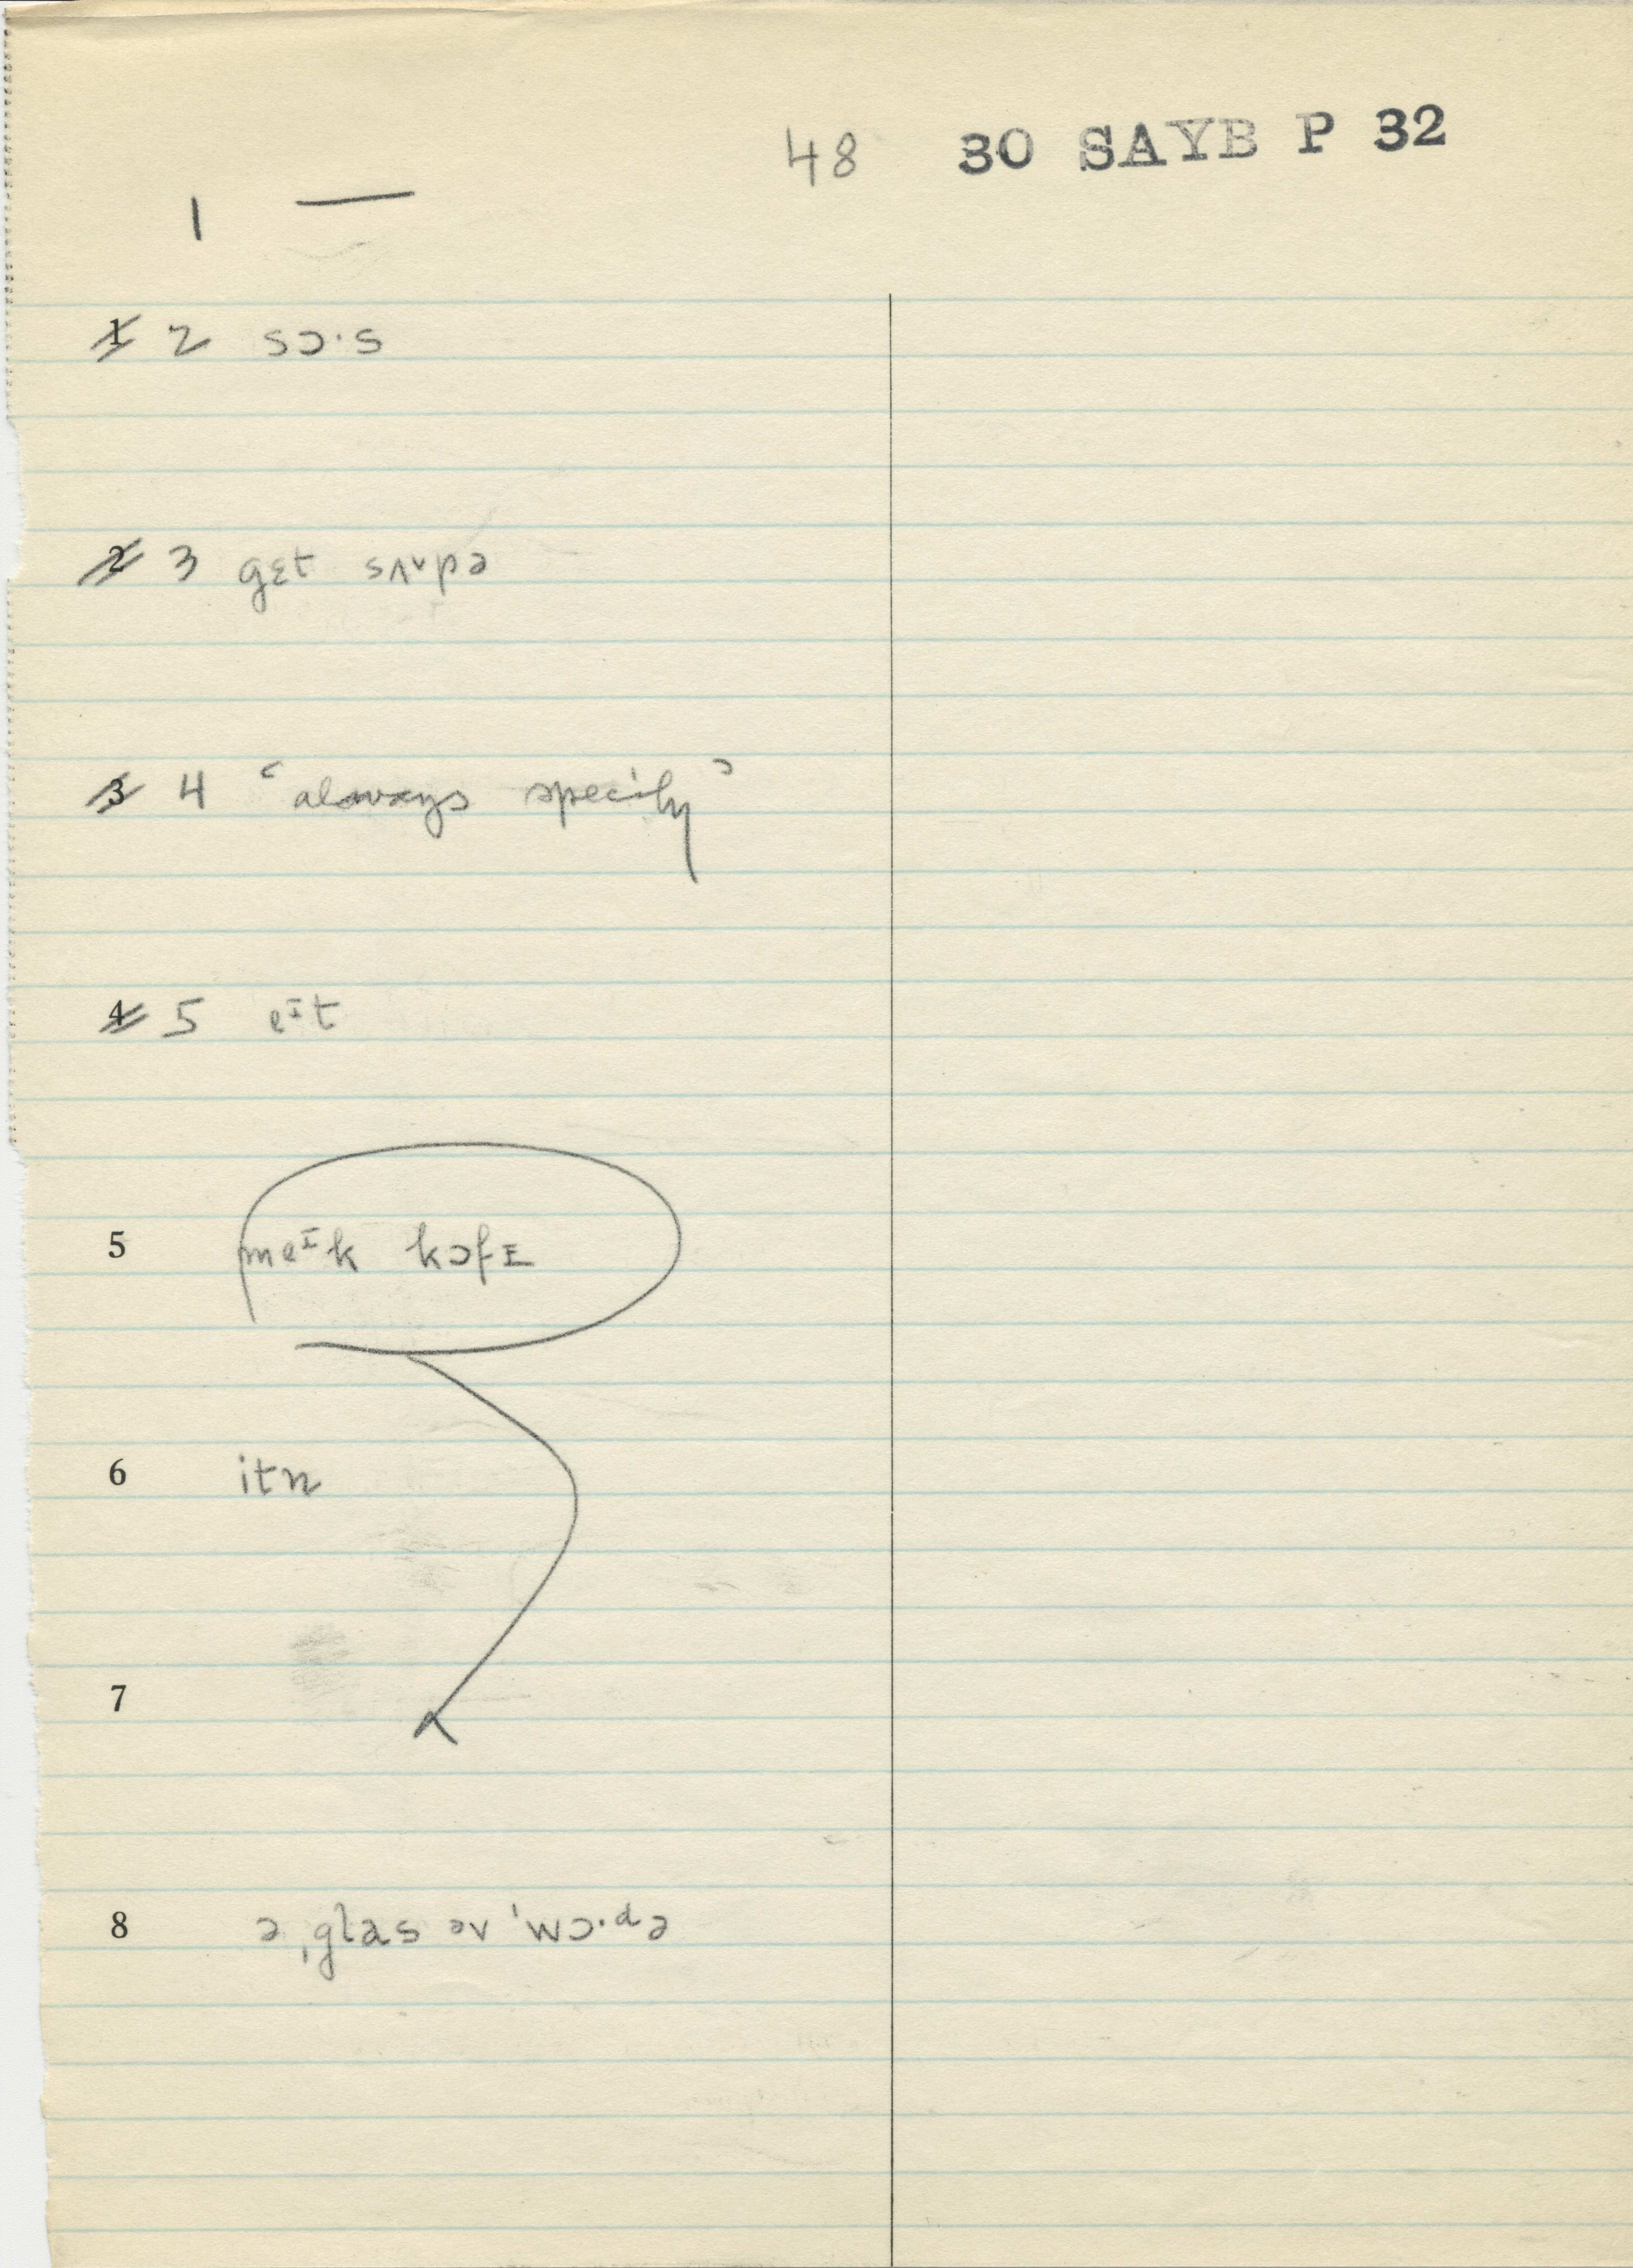 48 30 SAYB P 32
1 —
1 2 sɔ·s
2 3 gɛt sʌvpə
3 4 ‘always specify’
4 5 eᴵt
5 meᴵk kɔfɪ
6 itn
7
8 ə ˌglas əv ˈwɔ·də